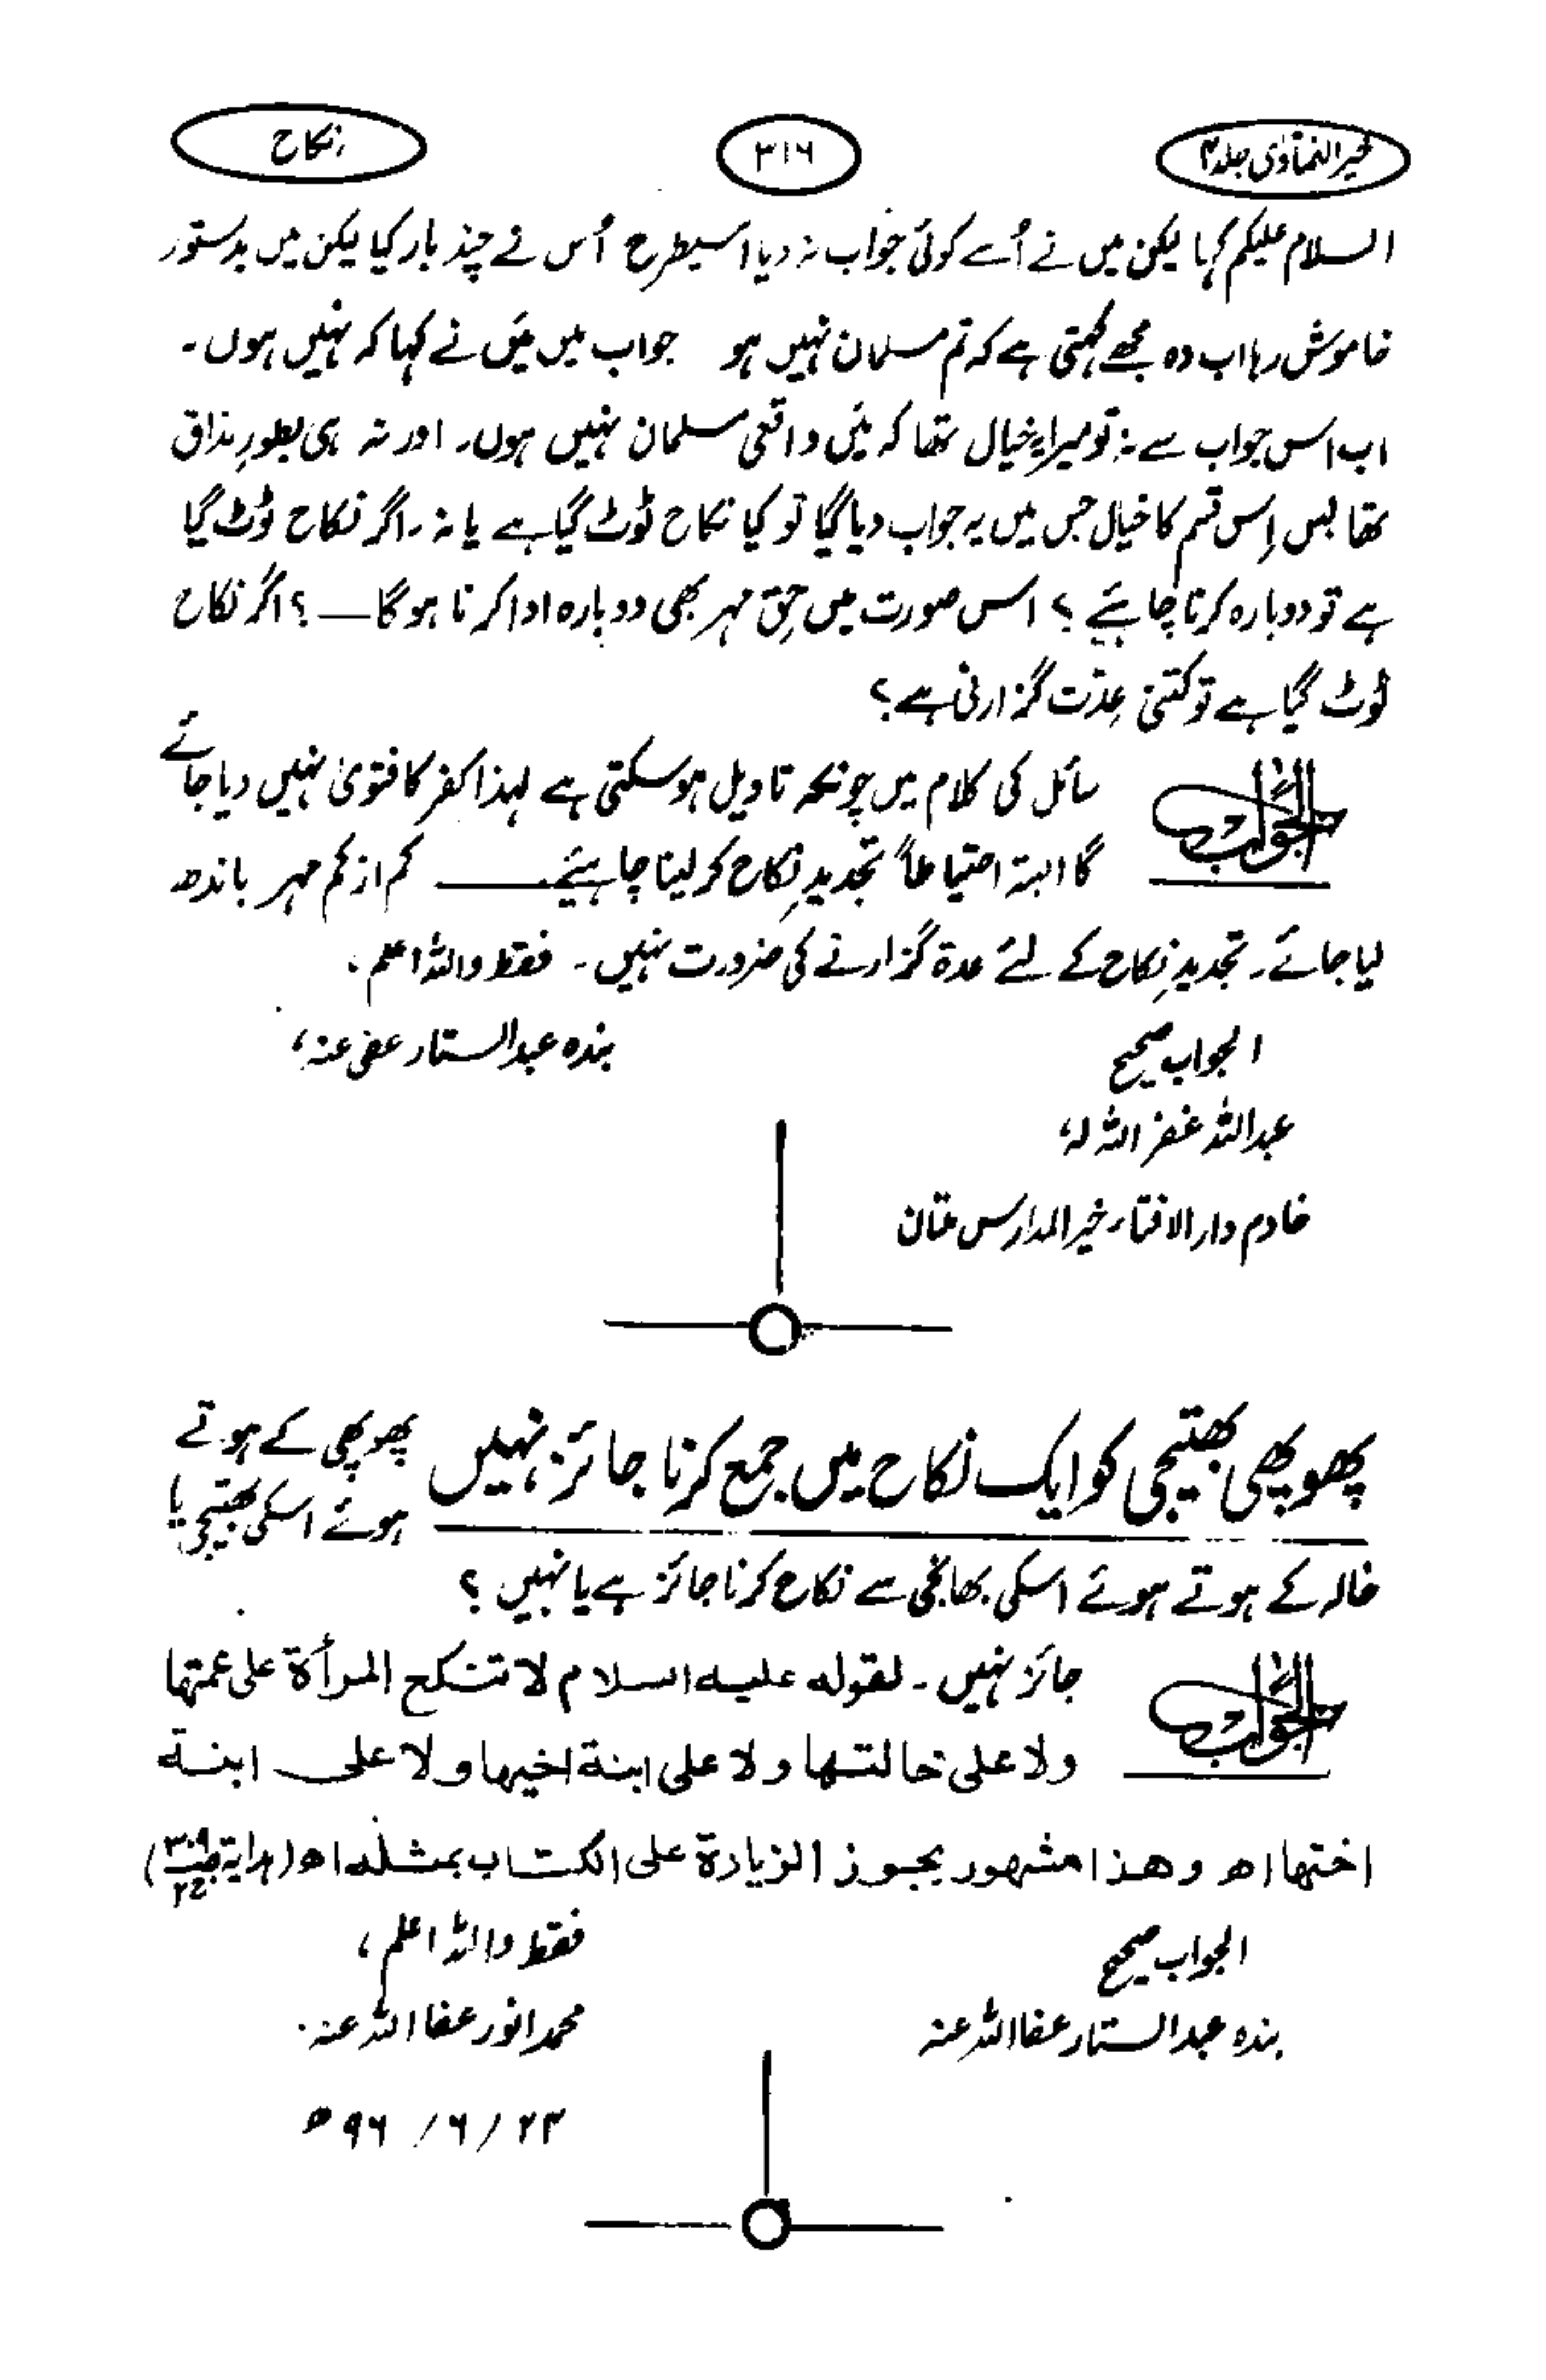 خیر الفتاوٰی جلد ۴
۳۱۶
نکاح
السلام علیکم کہا لیکن میں نے اُسے کوئی جواب نہ دیا اسیطرح اُس نے چند بار کیا لیکن میں بدستور
خاموش رہا اب وہ مجھے کہتی ہے کہ تم مسلمان نہیں ہو جواب میں میَں نے کہا کہ نہیں ہوں۔
اب اس جواب سے نہ تو میرا یہ خیال تھا کہ میَں واقعی مسلمان نہیں ہوں۔ اور نہ ہی بطورِ مذاق
تھا بس اِس قسم کا خیال جس میں یہ جواب دیا گیا تو کیا نکاح ٹوٹ گیا ہے یا نہ۔ اگر نکاح ٹوٹ گیا
ہے تو دوبارہ کرنا چاہیئے ؟ اس صورت میں حِق مہر بھی دوبارہ ادا کرنا ہوگا — ؟ اگر نکاح
ٹوٹ گیا ہے تو کتنی عِدّت گزارنی ہے؟
الجواب
سائل کی کلام میں چونکہ تاویل ہو سکتی ہے لہذا کفر کا فتویٰ نہیں دیا جائے
گا البتہ احتیاطاً تجدیدِ نکاح کر لینا چاہیئے۔ — کم از کم مہر باندھ
لیا جائے۔ تجدیدِ نِکاح کے لئے عدۃ گزارنے کی ضرورت نہیں۔ فقط واللہ اعلم۔
الجواب صحیح
بندہ عبدالستار عفی عنہ،
عبداللہ غفر اللہ لہٗ
خادم دارالافتاء خیر المدارس ملتان
پھوپھی بھتیجی کو ایک نکاح میں جمع کرنا جائز نہیں
پھوپھی کے ہوتے
ہوئے اسکی بھتیجی یا
خالہ کے ہوتے ہوئے اسکی بھانجی سے نکاح کرنا جائز ہے یا نہیں ؟
الجواب
جائز نہیں۔ لقوله عليه السلام لا تنكح المرأة على عمتها
ولا على خالتها ولا على ابنة اخيها ولا على ابنة
اختها اھ وهذا مشهور يجوز الزيادة على الكتاب بمثله اھ (ہدایۃ ص۳۰۹ ج۲)
الجواب صحیح
فقط واللہ اعلم،
بندہ عبدالستار عفا اللہ عنہ
محمد انور عفا اللہ عنہ۔
۲۳ / ۶ / ۹۶ ھ